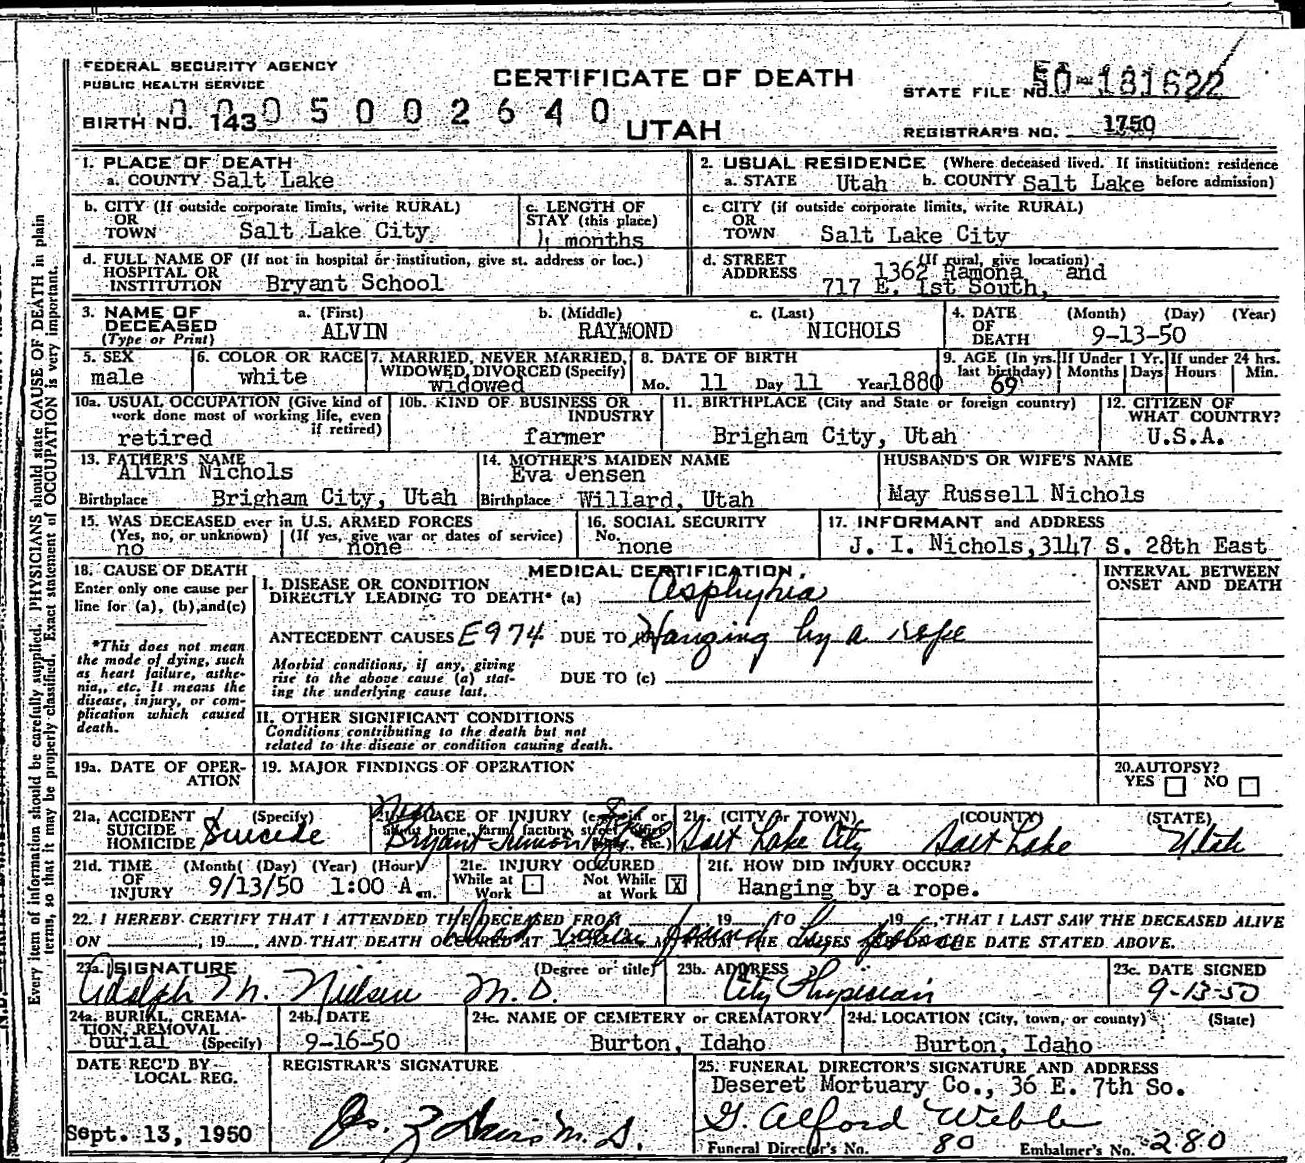 FEDERAL SECURITY AGENCY
PUBLIC HEALTH SERVICE
CERTIFICATE OF DEATH
STATE FILE NO. 50-181622
BIRTH NO. 143 0005002640
UTAH
REGISTRAR'S NO. 1750
1. PLACE OF DEATH
a. COUNTY Salt Lake
2. USUAL RESIDENCE (Where deceased lived. If institution: residence
a. STATE Utah b. COUNTY Salt Lake before admission)
b. CITY (If outside corporate limits, write RURAL)
OR
TOWN Salt Lake City
c. LENGTH OF
STAY (this place)
4 months
c. CITY (if outside corporate limits, write RURAL)
OR
TOWN Salt Lake City
d. FULL NAME OF (If not in hospital or institution, give st. address or loc.)
HOSPITAL OR
INSTITUTION Bryant School
d. STREET (If rural, give location)
ADDRESS 1362 Ramona and
717 E. 1st South,
3. NAME OF
DECEASED
(Type or Print)
a. (First) b. (Middle) c. (Last)
ALVIN RAYMOND NICHOLS
4. DATE (Month) (Day) (Year)
OF
DEATH 9-13-50
5. SEX
male
6. COLOR OR RACE
white
7. MARRIED, NEVER MARRIED,
WIDOWED, DIVORCED (Specify)
widowed
8. DATE OF BIRTH
Mo. 11 Day 11 Year 1880
9. AGE (In yrs.
last birthday)
69
If Under 1 Yr.
Months Days
If under 24 hrs.
Hours Min.
10a. USUAL OCCUPATION (Give kind of
work done most of working life, even
if retired)
retired
10b. KIND OF BUSINESS OR
INDUSTRY
farmer
11. BIRTHPLACE (City and State or foreign country)
Brigham City, Utah
12. CITIZEN OF
WHAT COUNTRY?
U.S.A.
13. FATHER'S NAME
Alvin Nichols
Birthplace Brigham City, Utah
14. MOTHER'S MAIDEN NAME
Eva Jensen
Birthplace Willard, Utah
HUSBAND'S OR WIFE'S NAME
May Russell Nichols
15. WAS DECEASED ever in U.S. ARMED FORCES
(Yes, no, or unknown) (If yes, give war or dates of service)
no none
16. SOCIAL SECURITY
No.
none
17. INFORMANT and ADDRESS
J. I. Nichols, 3147 S. 28th East
18. CAUSE OF DEATH
Enter only one cause per
line for (a), (b), and (c)
*This does not mean
the mode of dying, such
as heart failure, asthe-
nia, etc. It means the
disease, injury, or com-
plication which caused
death.
MEDICAL CERTIFICATION
INTERVAL BETWEEN
ONSET AND DEATH
I. DISEASE OR CONDITION
DIRECTLY LEADING TO DEATH* (a) Asphyxia
ANTECEDENT CAUSES E974 DUE TO (b) Hanging by a rope
Morbid conditions, if any, giving
rise to the above cause (a) stat-
ing the underlying cause last.
DUE TO (c)
II. OTHER SIGNIFICANT CONDITIONS
Conditions contributing to the death but not
related to the disease or condition causing death.
19a. DATE OF OPER-
ATION
19. MAJOR FINDINGS OF OPERATION
20. AUTOPSY?
YES NO
21a. ACCIDENT (Specify)
SUICIDE
HOMICIDE Suicide
PLACE OF INJURY (e.g., in or
about home, farm, factory, street, office
Bryant Junior High
21c. (CITY or TOWN) (COUNTY) (STATE)
Salt Lake City Salt Lake Utah
21d. TIME (Month) (Day) (Year) (Hour)
OF
INJURY 9/13/50 1:00 A.m.
21e. INJURY OCCURED
While at Work
Not While at Work X
21f. HOW DID INJURY OCCUR?
Hanging by a rope.
22. I HEREBY CERTIFY THAT I ATTENDED THE DECEASED FROM 19 TO , 19 THAT I LAST SAW THE DECEASED ALIVE
ON , 19 , AND THAT DEATH OCCURED AT M., FROM THE CAUSES AND ON THE DATE STATED ABOVE.
23a. SIGNATURE (Degree or title)
Adolph M. Nielsen M.D.
23b. ADDRESS
City Physician
23c. DATE SIGNED
9-13-50
24a. BURIAL, CREMA-
TION, REMOVAL
burial (Specify)
24b. DATE
9-16-50
24c. NAME OF CEMETERY or CREMATORY
Burton, Idaho
24d. LOCATION (City, town, or county) (State)
Burton, Idaho
DATE REC'D BY
LOCAL REG.
Sept. 13, 1950
REGISTRAR'S SIGNATURE
25. FUNERAL DIRECTOR'S SIGNATURE AND ADDRESS
Deseret Mortuary Co., 36 E. 7th So.
G. Alford Webb
Funeral Director's No. 80 Embalmer's No. 280
Every item of information should be carefully supplied. PHYSICIANS should state CAUSE OF DEATH in plain
terms, so that it may be properly classified. Exact statement of OCCUPATION is very important.